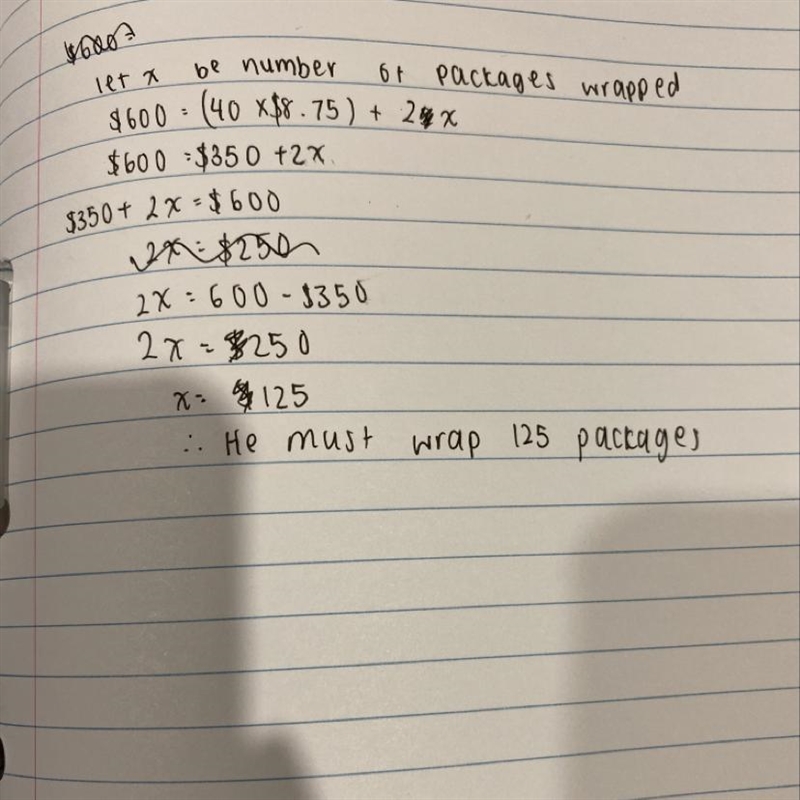 $600=
let x be number of packages wrapped
$600 = (40 x $8.75) + 2x
$600 = $350 + 2x
$350 + 2x = $600
2x = $250
2x = 600 - $350
2x = $250
x = $125
∴ He must wrap 125 packages